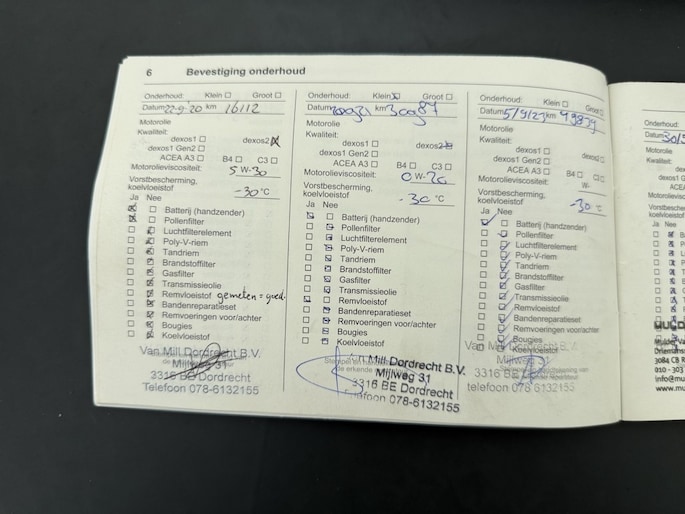 6 Bevestiging onderhoud
Onderhoud: Klein Groot
Datum 22-9-'20 km 16112
Motorolie
Kwaliteit:
dexos1 dexos2
dexos1 Gen2
ACEA A3 B4 C3
Motorolieviscositeit:
5 W-30
Vorstbescherming,
koelvloeistof -30 °C
Ja Nee
Batterij (handzender)
Pollenfilter
Luchtfilterelement
Poly-V-riem
Tandriem
Brandstoffilter
Gasfilter
Transmissieolie
Remvloeistof gemeten = goed.
Bandenreparatieset
Remvoeringen voor/achter
Bougies
Koelvloeistof
Van Mill Dordrecht B.V.
Mijlweg 31
3316 BE Dordrecht
Telefoon 078-6132155
Onderhoud: Klein Groot
Datum km 30987
Motorolie
Kwaliteit:
dexos1 dexos2
dexos1 Gen2
ACEA A3 B4 C3
Motorolieviscositeit:
0 W-20
Vorstbescherming,
koelvloeistof -30 °C
Ja Nee
Batterij (handzender)
Pollenfilter
Luchtfilterelement
Poly-V-riem
Tandriem
Brandstoffilter
Gasfilter
Transmissieolie
Remvloeistof
Bandenreparatieset
Remvoeringen voor/achter
Bougies
Koelvloeistof
Van Mill Dordrecht B.V.
Mijlweg 31
3316 BE Dordrecht
Telefoon 078-6132155
Onderhoud: Klein Groot
Datum 5/9/23 km 49879
Motorolie
Kwaliteit:
dexos1 dexos2
dexos1 Gen2
ACEA A3 B4 C3
Motorolieviscositeit:
W-
Vorstbescherming,
koelvloeistof -30 °C
Ja Nee
Batterij (handzender)
Pollenfilter
Luchtfilterelement
Poly-V-riem
Tandriem
Brandstoffilter
Gasfilter
Transmissieolie
Remvloeistof
Bandenreparatieset
Remvoeringen voor/achter
Bougies
Koelvloeistof
Van Mill Dordrecht B.V.
Mijlweg
3316 BE
telefoon 078 6132155
Onderh
Datum 30/
Motorolie
Kwaliteit:
dexos1 G
ACEA
Motorolievisc
Vorstbesche
koelvloeistof
Ja Nee
Mulder
3084 CB R
010 - 303
info@mu
www.m